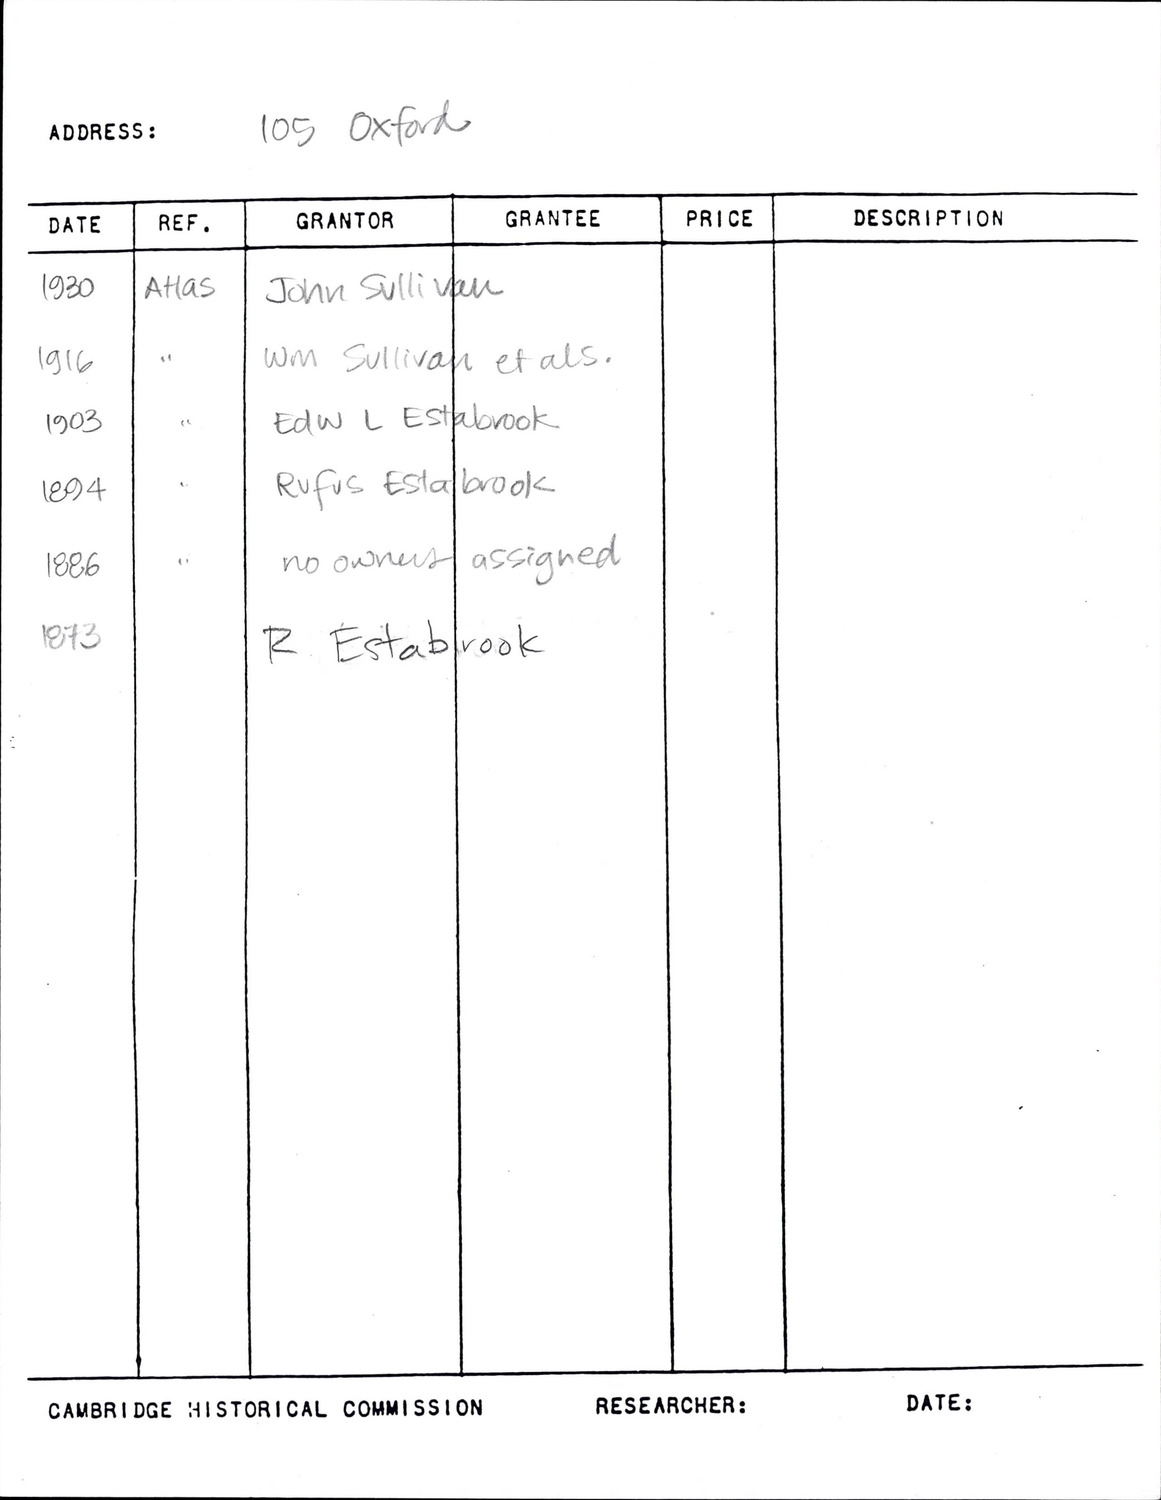 ADDRESS: 105 Oxford
DATE REF. GRANTOR GRANTEE PRICE DESCRIPTION
1930 Atlas John Sullivan
1916 " Wm Sullivan et als.
1903 " Edw L Estabrook
1894 " Rufus Estabrook
1886 " no owners assigned
1873 R Estabrook
CAMBRIDGE HISTORICAL COMMISSION RESEARCHER: DATE: